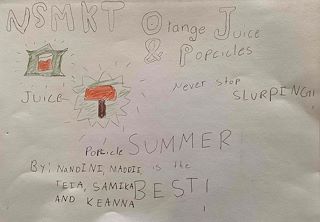 NSMKT Orange Juice
& Popcicles
Never stop
SLURPING!!
JUICE
Popcicle SUMMER
By: NANDINI, MADDIE, is the
TEIA, SAMIKA BEST!
AND KEANNA